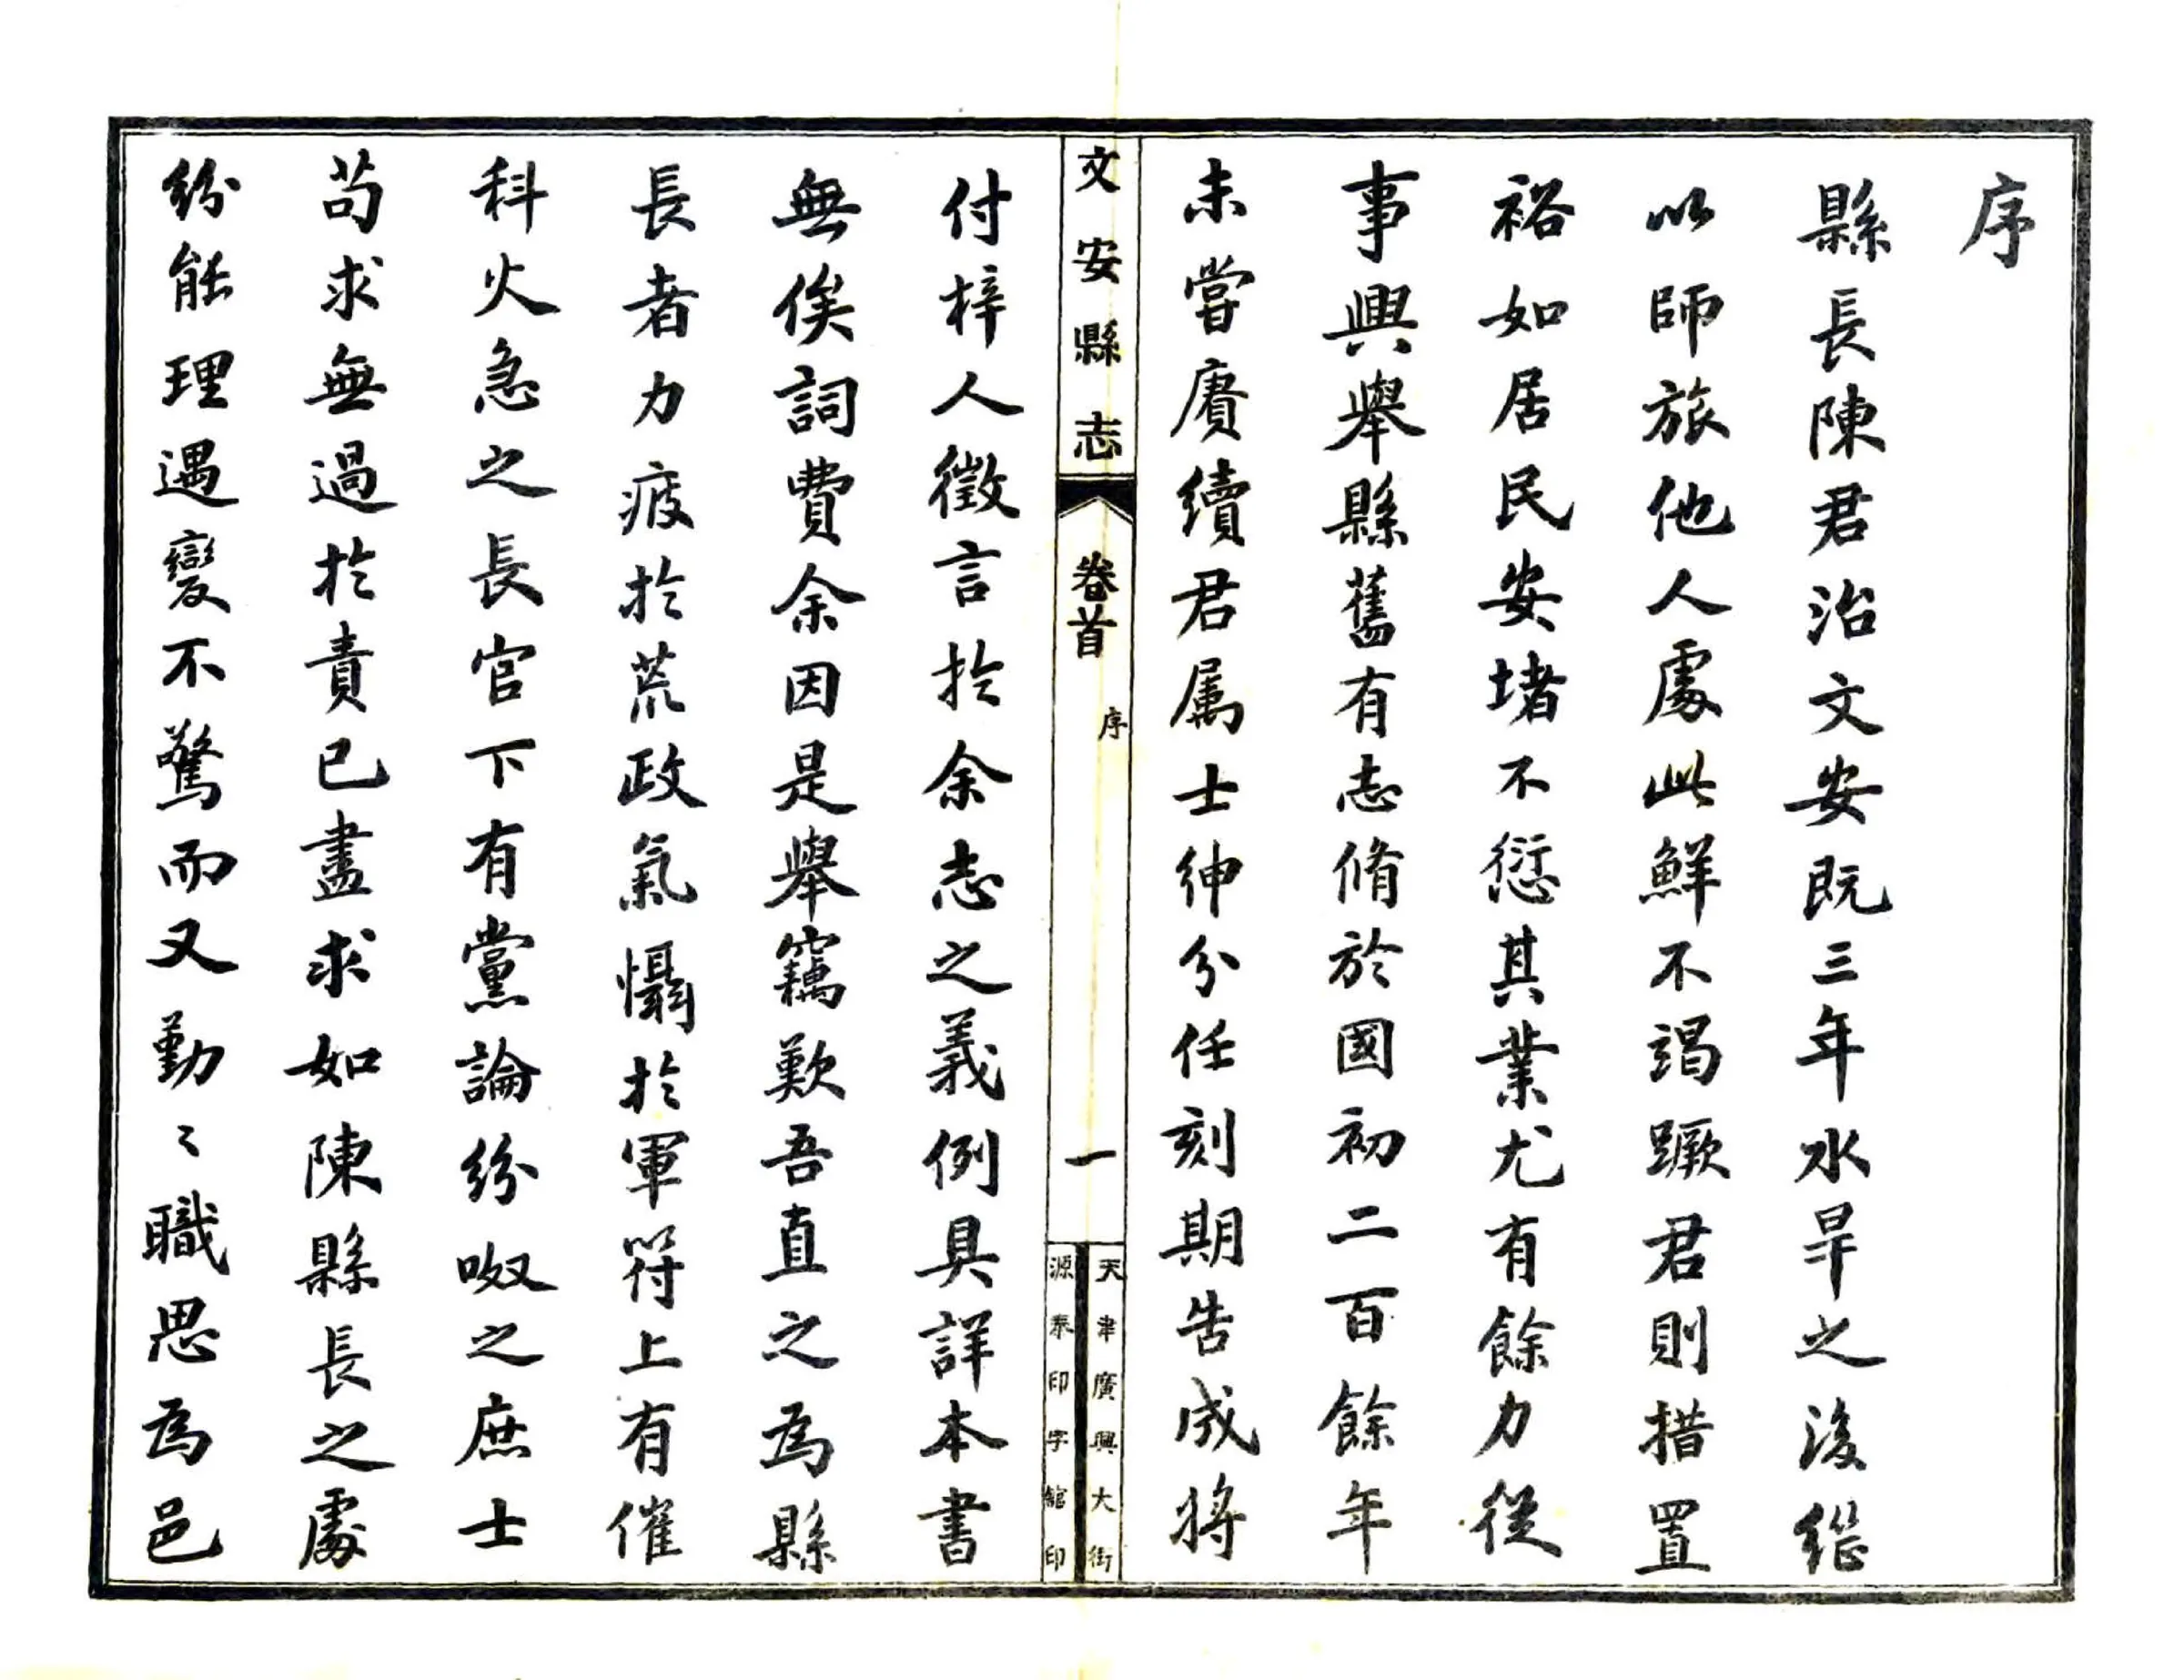 序
縣長陳君治文安既三年水旱之後繼
以師旅他人處此鮮不竭蹶君則措置
裕如居民安堵不愆其業尤有餘力從
事興舉縣舊有志脩於國初二百餘年
未嘗賡續君属士紳分任刻期告成將
文安縣志
卷首
序
一
天津廣興大街
源泰印字館印
付梓人徵言於余志之義例具詳本書
無俟詞費余因是舉竊歎吾直之為縣
長者力疲於荒政氣懾於軍符上有催
科火急之長官下有黨論紛呶之庶士
苟求無過於責已盡求如陳縣長之處
紛能理遇變不驚而又勤〻職思為邑